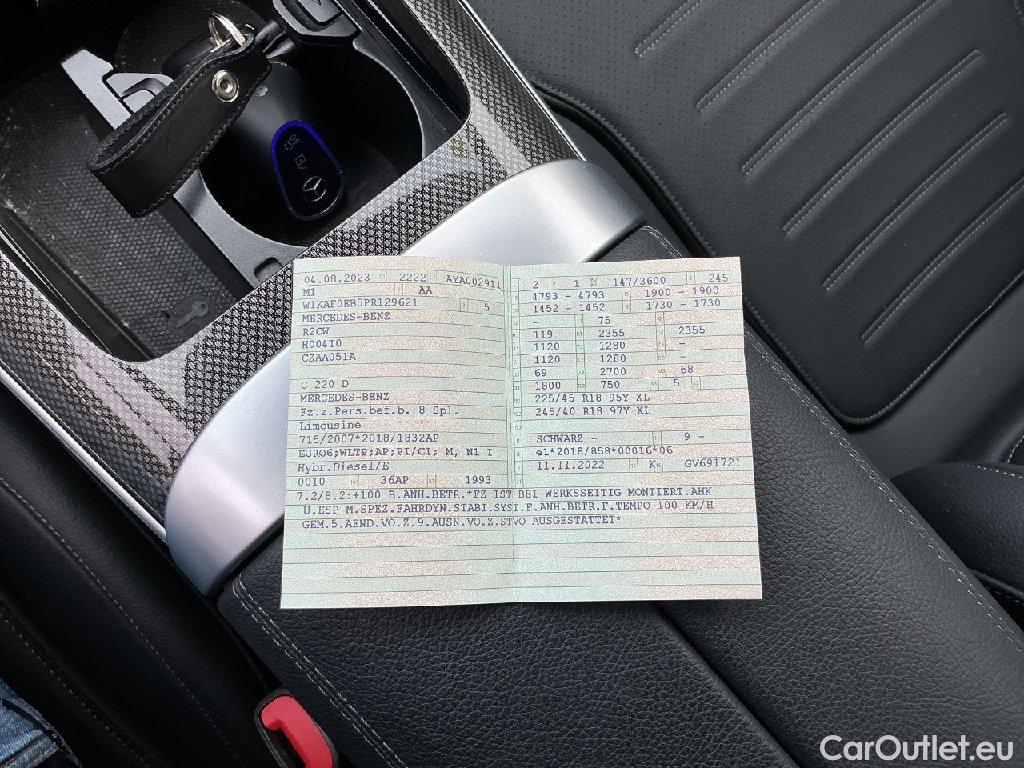 04.08.2023 2222 AYAC02911
M1 AA
5
MERCEDES-BENZ
R2CW
CZAA051A
C 220 D
MERCEDES-BENZ
Fz.z.Pers.bef.b. 8 Spl.
Limousine
715/2007*2018/1832AP
EURO6;WLTP;AP;PI/CI; M, N1 I
Hybr.Diesel/E
0010 36AP 1993
2 1 147/3600 245
4793 - 4793 1900 - 1900
1452 - 1452 1730 - 1730
- 75 -
119 2355 2355
1120 1280 -
1120 1280 -
69 2700 68
1800 750 5
225/45 R18 95Y XL
245/40 R18 97Y XL
-
SCHWARZ - 9 -
e1*2018/858*00016*06
11.11.2022 K GV691721
7.2/8.2:+100 B.ANH.BETR.*FZ IST BEI WERKSSEITIG MONTIERT.AHK
U.ESP M.SPEZ.FAHRDYN.STABI.SYST.F.ANH.BETR.F.TEMPO 100 KM/H
GEM.5.AEND.VO.Z.9.AUSN.VO.Z.STVO AUSGESTATTET*
CarOutlet.eu